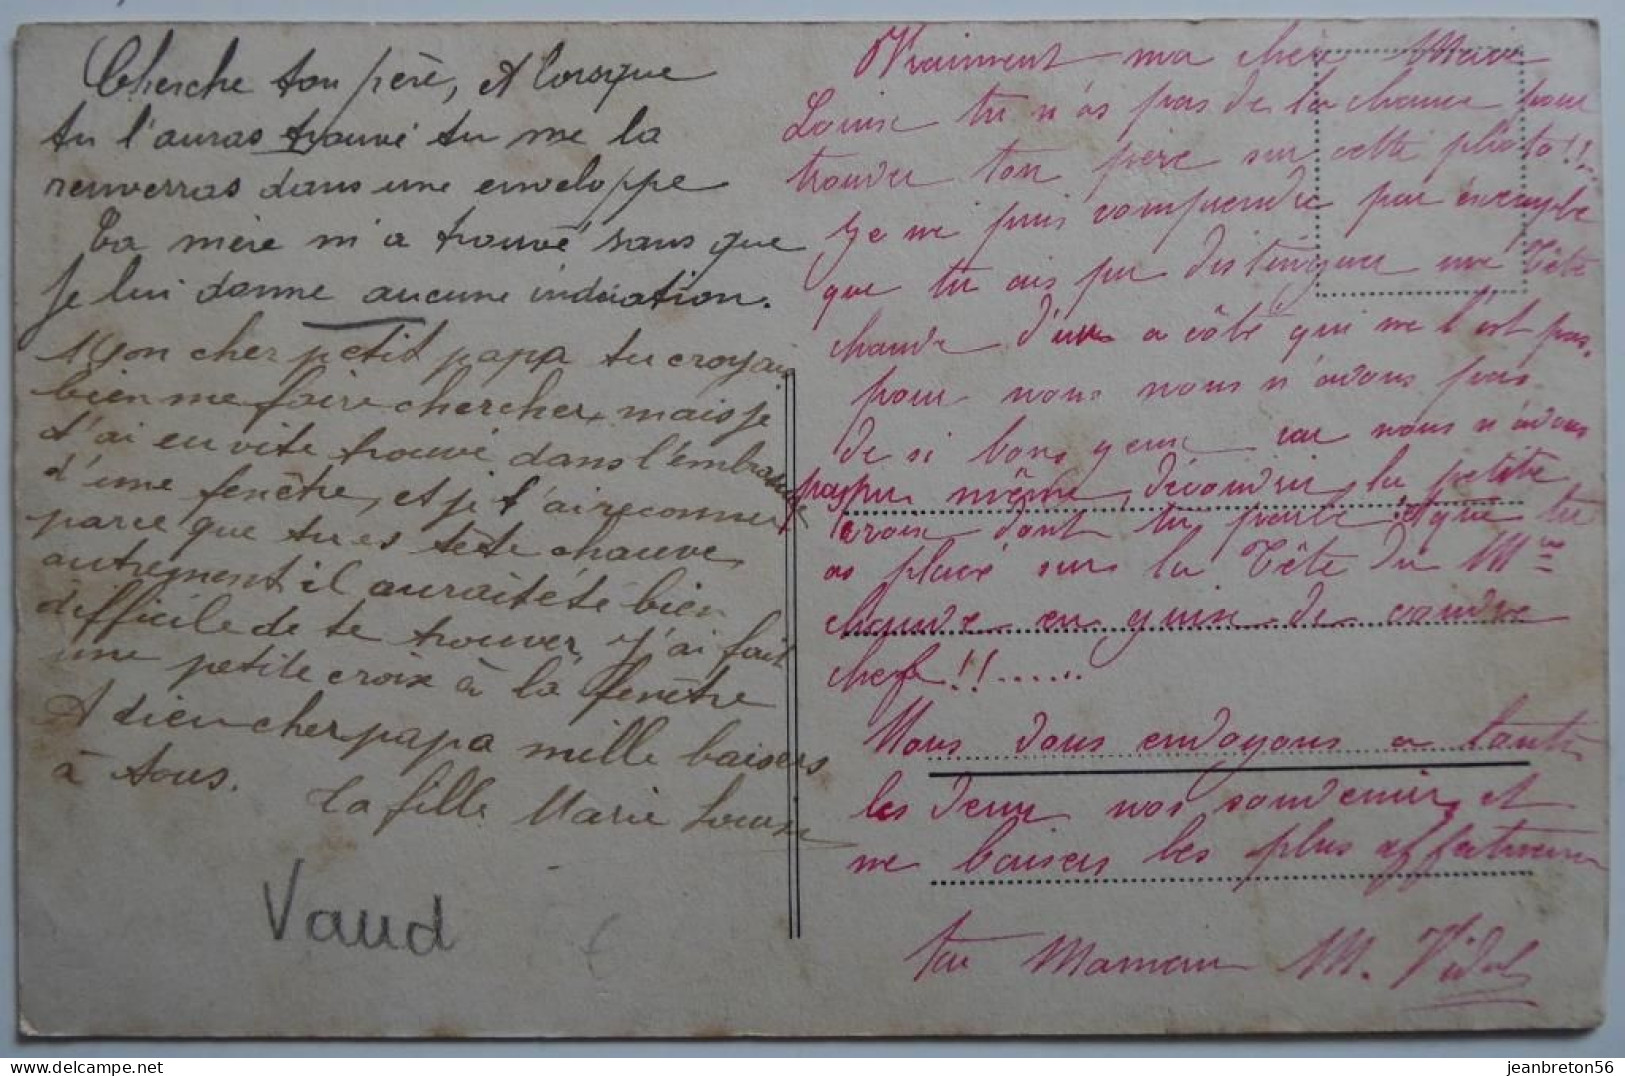 Cherche ton père, et lorsque
tu l'auras trouvé tu me la
renverras dans une enveloppe
Ta mère m'a trouvé sans que
je lui donne aucune indication.
Mon cher petit papa tu croyais
bien me faire chercher, mais je
t'ai eu vite trouvé dans l'embrasure
d'une fenêtre, et je t'ai reconnu
parce que tu es tête chauve
autrement il aurait été bien
difficile de te trouver, j'ai fait
une petite croix à la fenêtre
Adieu cher papa mille baisers
à tous.
Ta fille Marie Louise
Vaud
Vraiment ma chère Marie
Louise tu n'as pas de la chance pour
trouver ton père sur cette photo!!
Je ne puis comprendre par éxemple
que tu ais pu distinguer une Tête
chauve d'une a côté qui ne l'est pas.
pour nous nous n'avons pas
de si bons yeux car nous n'avons
pas pu même, découvrir la petite
croix dont tu parle et que tu
as placé sur la Tête du Mr
chauve en guise de couvre
chef!!......
Nous vous envoyons a toutes
les deux nos souvenirs et
ne baisers les plus affectueux
ta Maman M. Vidal
jeanbreton56